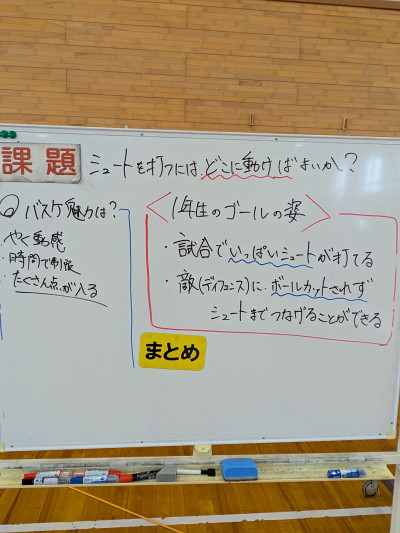 課題 シュートを打つには、どこに動けばよいか？
Q バスケ魅力は？
・やく動感
・時間で制限
・たくさん点が入る
＜1年生のゴールの姿＞
・試合でいっぱいシュートが打てる
・敵(ディフェンス)に、ボールカットされず
シュートまでつなげることができる
まとめ